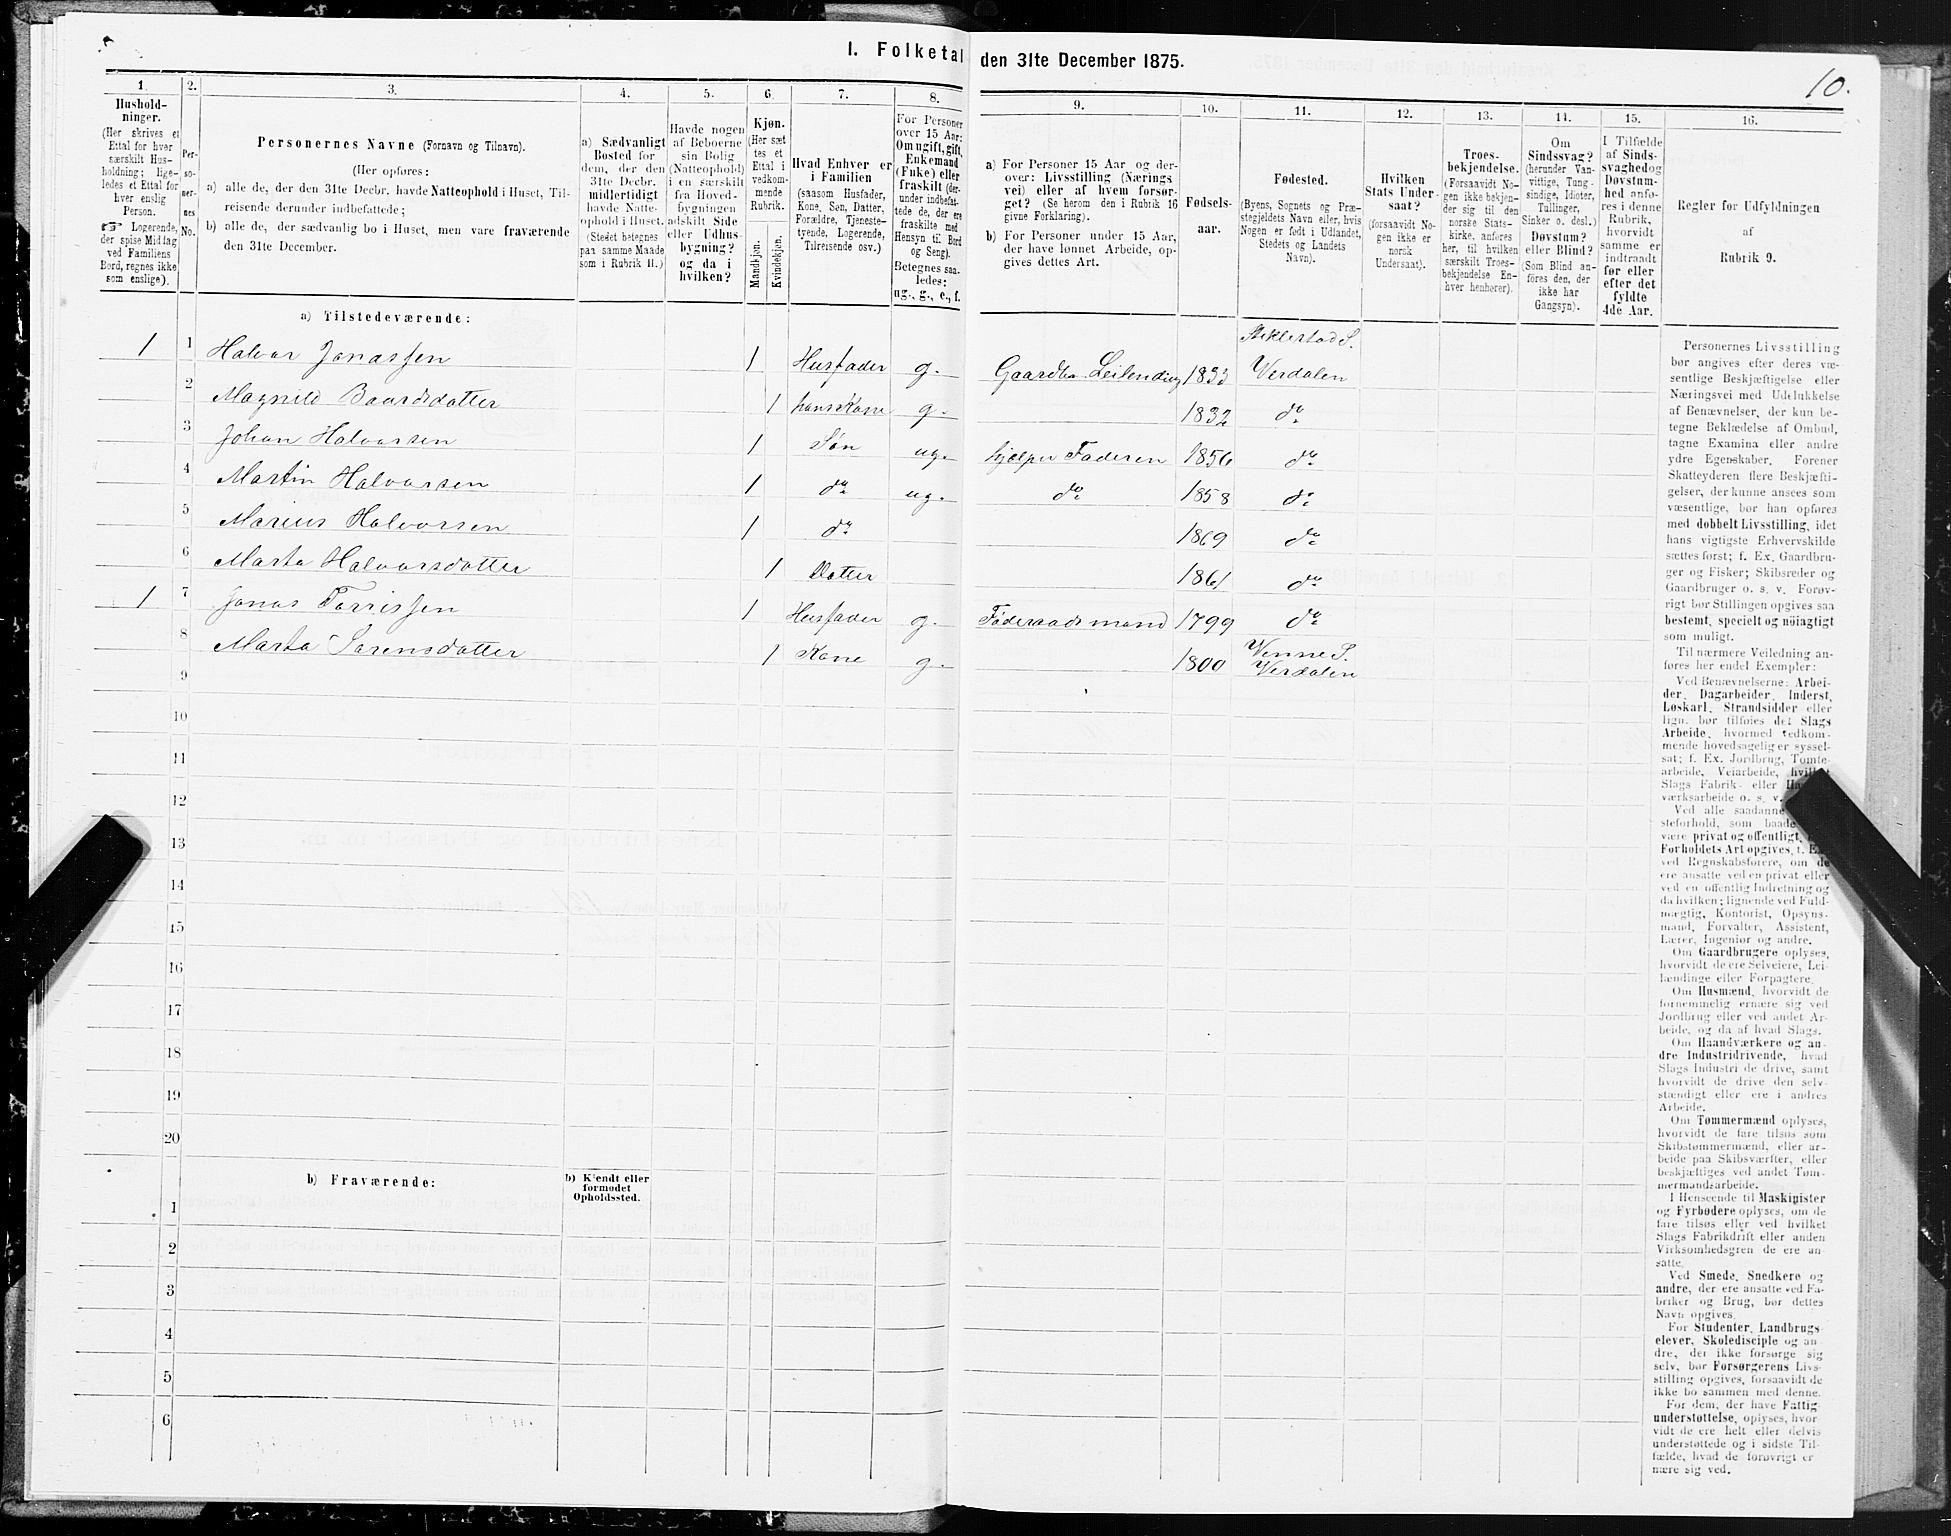 I. Folketal den 31te December 1875.
10.
1.
Hushold-
ninger.
(Her skrives et
Ettal for hver
særskilt Hus-
holdning; lige-
ledes et Ettal for
hver enslig
Person.
Logerende,
der spise Middag
ved Familiens
Bord, regnes ikke
som enslige).
2.
Per-
so-
ner-
nes
No.
3.
Personernes Navne (Fornavn og Tilnavn).
(Her opføres:
a) alle de, der den 31te Decbr. havde Natteophold i Huset, Til-
reisende derunder indbefattede;
b) alle de, der sædvanlig bo i Huset, men vare fraværende
den 31te December.
4.
a) Sædvanligt
Bosted for
dem, der den
31te Decbr.
midlertidigt
havde Natte-
ophold i Huset.
(Stedet betegnes
paa samme Maade
som i Rubrik 11.)
5.
Havde nogen
af Beboerne
sin Bolig
(Natteophold)
i en særskilt
fra Hoved-
bygningen
adskilt Side
eller Udhus-
bygning?
og da i
hvilken?
6.
Kjøn.
(Her sæt
tes et
Ettal i
vedkom-
mende
Rubrik.
Mandkjøn.
Kvindekjøn.
7.
Hvad Enhver er
i Familien
(saasom Husfader,
Kone, Søn, Datter,
Forældre, Tjeneste-
tyende, Logerende,
Tilreisende osv.)
8.
For Personer
over 15 Aar:
Om ugift, gift,
Enkemand
(Enke) eller
fraskilt (der-
under indbefat-
tede de, der ere
fraskilte med
Hensyn til Bord
og Seng).
Betegnes saa-
ledes:
ug., g., e., f.
9.
a) For Personer 15 Aar og der-
over: Livsstilling (Nærings
vei) eller af hvem forsør-
get? (Se herom den i Rubrik 16
givne Forklaring).
b) For Personer under 15 Aar,
der have lønnet Arbeide, op-
gives dettes Art.
10.
Fødsels-
aar.
11.
Fødested.
(Byens, Sognets og Præ-
stegjeldets Navn eller, hvis
Nogen er født i Udlandet,
Stedets og Landets
Navn).
12.
Hvilken
Stats Under-
saat?
(forsaavidt No-
gen ikke er
norsk
Undersaat).
13.
Troes-
bekjendelse.
(Forsaavidt No-
gen ikke bekjen-
der sig til den
norske Stats-
kirke, anføres
her, til hvilken
særskilt Troes-
bekjendelse En-
hver henhører).
14.
Om
Sindssvag?
(herunder Van-
vittige, Tung-
sindige, Idioter,
Tullinger,
Sinker o. desl.)
Døvstum?
eller Blind?
(Som Blind an-
føres den, der
ikke har
Gangsyn).
15.
I Tilfælde
af Sinds-
svaghed og
Døvstum-
hed anfø-
res i denne
Rubrik,
hvorvidt
samme er
indtraadt
før eller
efter det
fyldte
4de Aar.
16.
Regler for Udfyldningen
af
Rubrik 9.
a) Tilstedeværende:
1 1 Halvor Jonassen 1 Husfader g. Gaardbr. Leilending 1833 Stiklestad S. Verdalen
2 Magnild Baardsdatter 1 hans Kone g. 1832 do
3 Johan Halvorsen 1 Søn ug. hjælper Faderen 1856 do
4 Martin Halvorsen 1 do ug. do 1858 do
5 Marius Halvorsen 1 do 1869 do
6 Marta Halvorsdatter 1 Datter 1861 do
1 7 Jonas Torrissen 1 Husfader g. Føderaadsmand 1799 do
8 Marta Sørensdatter 1 Kone g. 1800 Vinne S. Verdalen
9
10
11
12
13
14
15
16
17
18
19
20
b) Fraværende:
b) Kjendt eller
formodet
Opholdssted.
1
2
3
4
5
6
Personernes Livsstilling
bør angives efter deres væ-
sentlige Beskjæftigelse eller
Næringsvei med Udelukkelse
af Benævnelser, der kun be-
tegne Beklædelse af Ombud,
tagne Examina eller andre
ydre Egenskaber. Forener
Skatteyderen flere Beskjæfti-
gelser, der kunne ansees som
væsentlige, bør han opføres
med dobbelt Livsstilling, idet
hans vigtigste Erhvervskilde
sættes først; f. Ex. Gaardbru-
ger og Fisker; Skibsreder og
Gaardbruger o. s. v. Forøv-
rigt bør Stillingen opgives saa
bestemt, specielt og nöiagtigt
som muligt.
Til nærmere Veiledning an-
føres her endel Exempler:
Ved Benævnelserne: Arbei-
der, Dagarbeider, Inderst,
Løskarl, Strandsidder eller
lign. bør tilføies det Slags
Arbeide, hvormed vedkom-
mende hovedsagelig er syssel-
sat; f. Ex. Jordbrug, Tomte-
arbeide, Veiarbeide, hvilket
Slags Fabrik- eller
værksarbeide o. s. v.
Ved alle saadanne
steforhold, som baade
være privat og offentligt,
Forholdets Art opgives, f. Ex.
ved Regnskabsførere, om de
ere ansatte ved en privat eller
ved en offentlig Indretning og
da hvilken; lignende ved Fuld-
mægtig, Kontorist, Opsyns-
mand, Forvalter, Assistent,
Lærer, Ingeniør og andre.
Om Gaardbrugere oplyses,
hvorvidt de ere Selveiere, Lei-
lændinge eller Forpagtere.
Om Husmænd, hvorvidt de
fornemmelig ernære sig ved
Jordbrug eller ved andet Ar-
beide, og da af hvad Slags.
Om Haandværkere og an-
dre Industridrivende, hvad
Slags Industri de drive, samt
hvorvidt de drive den selv-
stændigt eller ere i andres
Arbeide.
Om Tømmermænd oplyses,
hvorvidt de fare tilsøs som
Skibstømmermænd, eller ar-
beide paa Skibsværfter, eller
beskjæftiges ved andet Tøm-
mermandsarbeide.
I Henseende til Maskinister
og Fyrbødere oplyses, om de
fare tilsøs eller ved hvilket
Slags Fabrikdrift eller anden
Virksomhedsgren de ere an-
satte.
Ved Smede, Snedkere og
andre, der ere ansatte ved Fa-
briker og Brug, bør dettes
Navn opgives.
For Studenter, Landbrugs-
elever, Skoledisciple og an-
dre, der ikke forsørge sig
selv, bør Forsørgerens Livs-
stilling opgives, forsaavidt de
ikke bo sammen med denne.
For dem, der have Fattig-
understøttelse, oplyses, hvor-
vidt de ere helt eller delvis
understøttede og i sidste Til-
fælde, hvad de forøvrigt er-
nære sig ved.